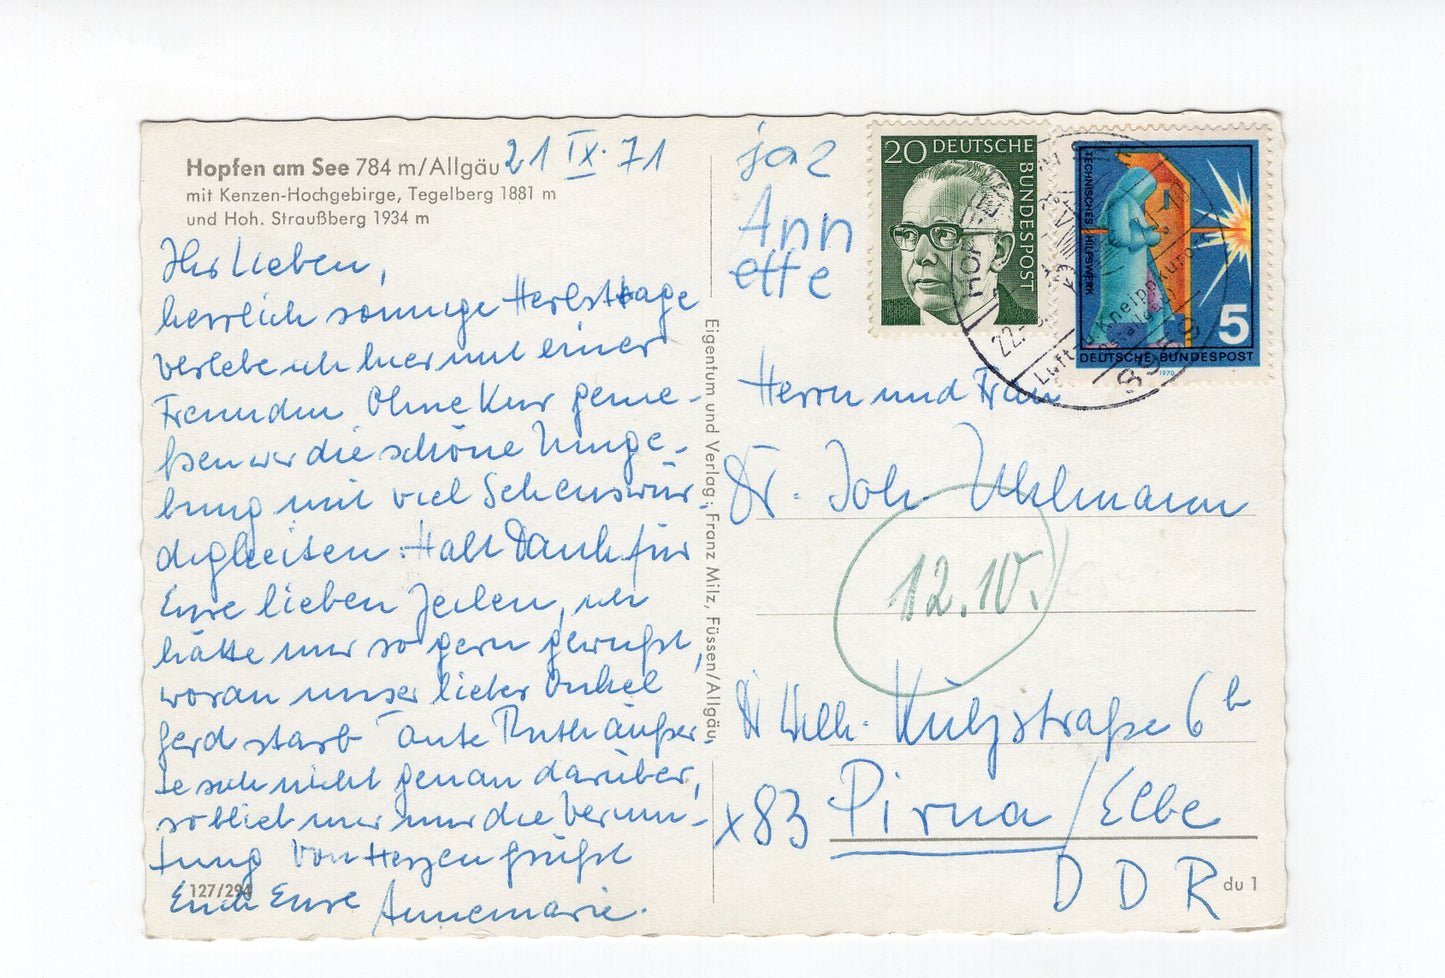 Hopfen am See 784 m/Allgäu 21 IX. 71
mit Kenzen-Hochgebirge, Tegelberg 1881 m
und Hoh. Straußberg 1934 m
Ihr Lieben,
herrlich sonnige Herbsttage
verlebe ich hier mit einer
Freundin Ohne Kur genie-
ßen wir die schöne Umge-
bung mit viel Sehenswür-
digkeiten. Habt Dank für
Eure lieben Zeilen, ich
hätte nur so gern gewußt,
woran unser lieber Onkel
Gerd starb Tante Ruth äußer-
te sich nicht genau darüber,
so blieb mir nur die Vermu-
tung Von Herzen grüßt
Euch Eure Annemarie.
127/294
Eigentum und Verlag: Franz Milz, Füssen/Allgäu
Ann
ette
20 DEUTSCHE
BUNDESPOST
TECHNISCHES HILFSWERK
5
DEUTSCHE BUNDESPOST
1970
HOPFEN
22.
Luft
Kneippkurort
8959
Herrn und Frau
Dr. Joh. Uhlmann
12.10.
Külzstraße 6 b
x83 Pirna/Elbe
DDR
du 1